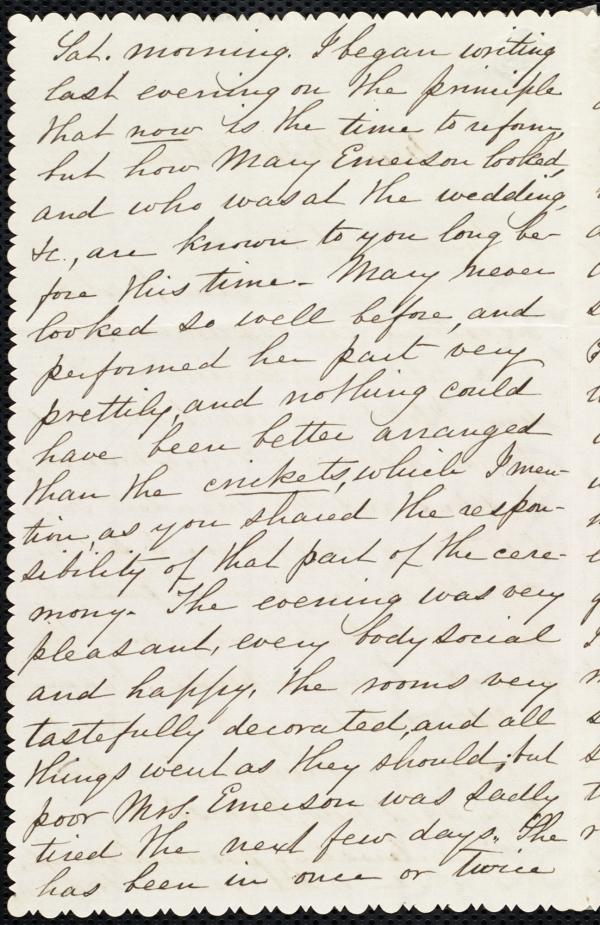 Sat. morning. I began writing
last evening on the principle
that now is the time to reform,
but how Mary Emerson looked,
and who was at the wedding,
&c., are known to you long be-
fore this time. Mary never
looked so well before, and
performed her part very
prettily, and nothing could
have been better arranged
than the crickets, which I men-
tion, as you shared the respon-
sibility of that part of the cere-
mony. The evening was very
pleasant, every body social
and happy, the rooms very
tastefully decorated, and all
things went as they should; but
poor Mrs. Emerson was sadly
tired the next few days. She
has been in once or twice